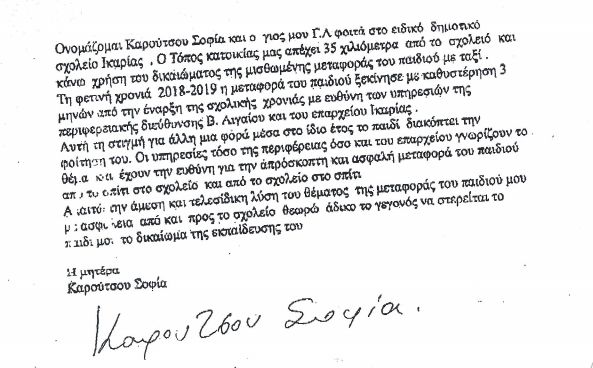 Ονομάζομαι Καρούτσου Σοφία και ο γιος μου Γ.Λ φοιτά στο ειδικό δημοτικό
σχολείο Ικαρίας . Ο Τόπος κατοικίας μας απέχει 35 χιλιόμετρα από το σχολειό και
κάνω χρήση του δικαιώματος της μισθωμένης μεταφοράς του παιδιού με ταξί .
Τη φετινή χρονιά 2018-2019 η μεταφορά του παιδιού ξεκίνησε με καθυστέρηση 3
μηνών από την έναρξη της σχολικής χρονιάς με ευθύνη των υπηρεσιών της
περιφερειακής διεύθυνσης Β. Αιγαίου και του επαρχείου Ικαρίας .
Αυτή τη στιγμή για άλλη μια φορά μέσα στο ίδιο έτος το παιδί διακόπτει την
φοίτηση του. Οι υπηρεσίες τόσο της περιφέρειας όσο και του επαρχείου γνωρίζουν το
θέμα και έχουν την ευθύνη για την απρόσκοπτη και ασφαλή μεταφορά του παιδιού
από το σπίτι στο σχολείο και από το σχολείο στο σπίτι
Απαιτώ την άμεση και τελεσίδικη λύση του θέματος της μεταφοράς του παιδιού μου
με ασφάλεια από και προς το σχολείο θεωρώ άδικο το γεγονός να στερείται το
παιδί μου το δικαίωμα της εκπαίδευσης του
Η μητέρα
Καρούτσου Σοφία
Καρουτσου Σοφία.